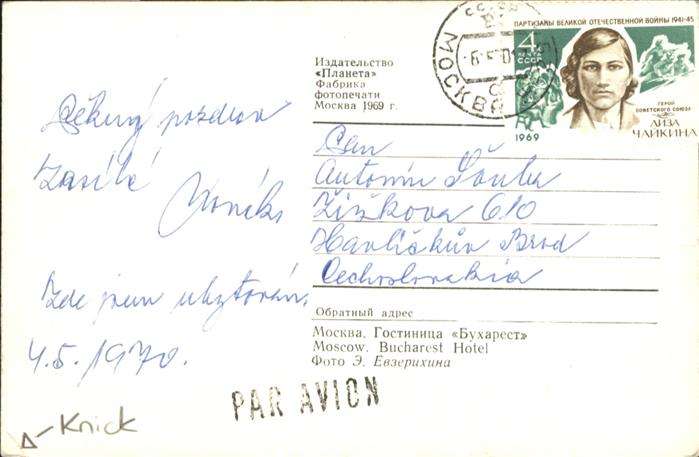 Děkuji pozdrav
Zasílá
Zde jsem ubytován.
4.5.1970.
Knick
Издательство
«Планета»
Фабрика
фотопечати
Москва 1969 г.
МОСКВА
ПАРТИЗАНЫ ВЕЛИКОЙ ОТЕЧЕСТВЕННОЙ ВОЙНЫ 1941-45
4
ПОЧТА
СССР
ГЕРОЙ
СОВЕТСКОГО СОЮЗА
ЛИЗА
ЧАЙКИНА
1969
Pan
Antonín
Žižkova 610
Havlíčkův Brod
Čechoslovakia
Обратный адрес
Москва. Гостиница «Бухарест»
Moscow. Bucharest Hotel
Фото Э. Евзерихина
PAR AVION